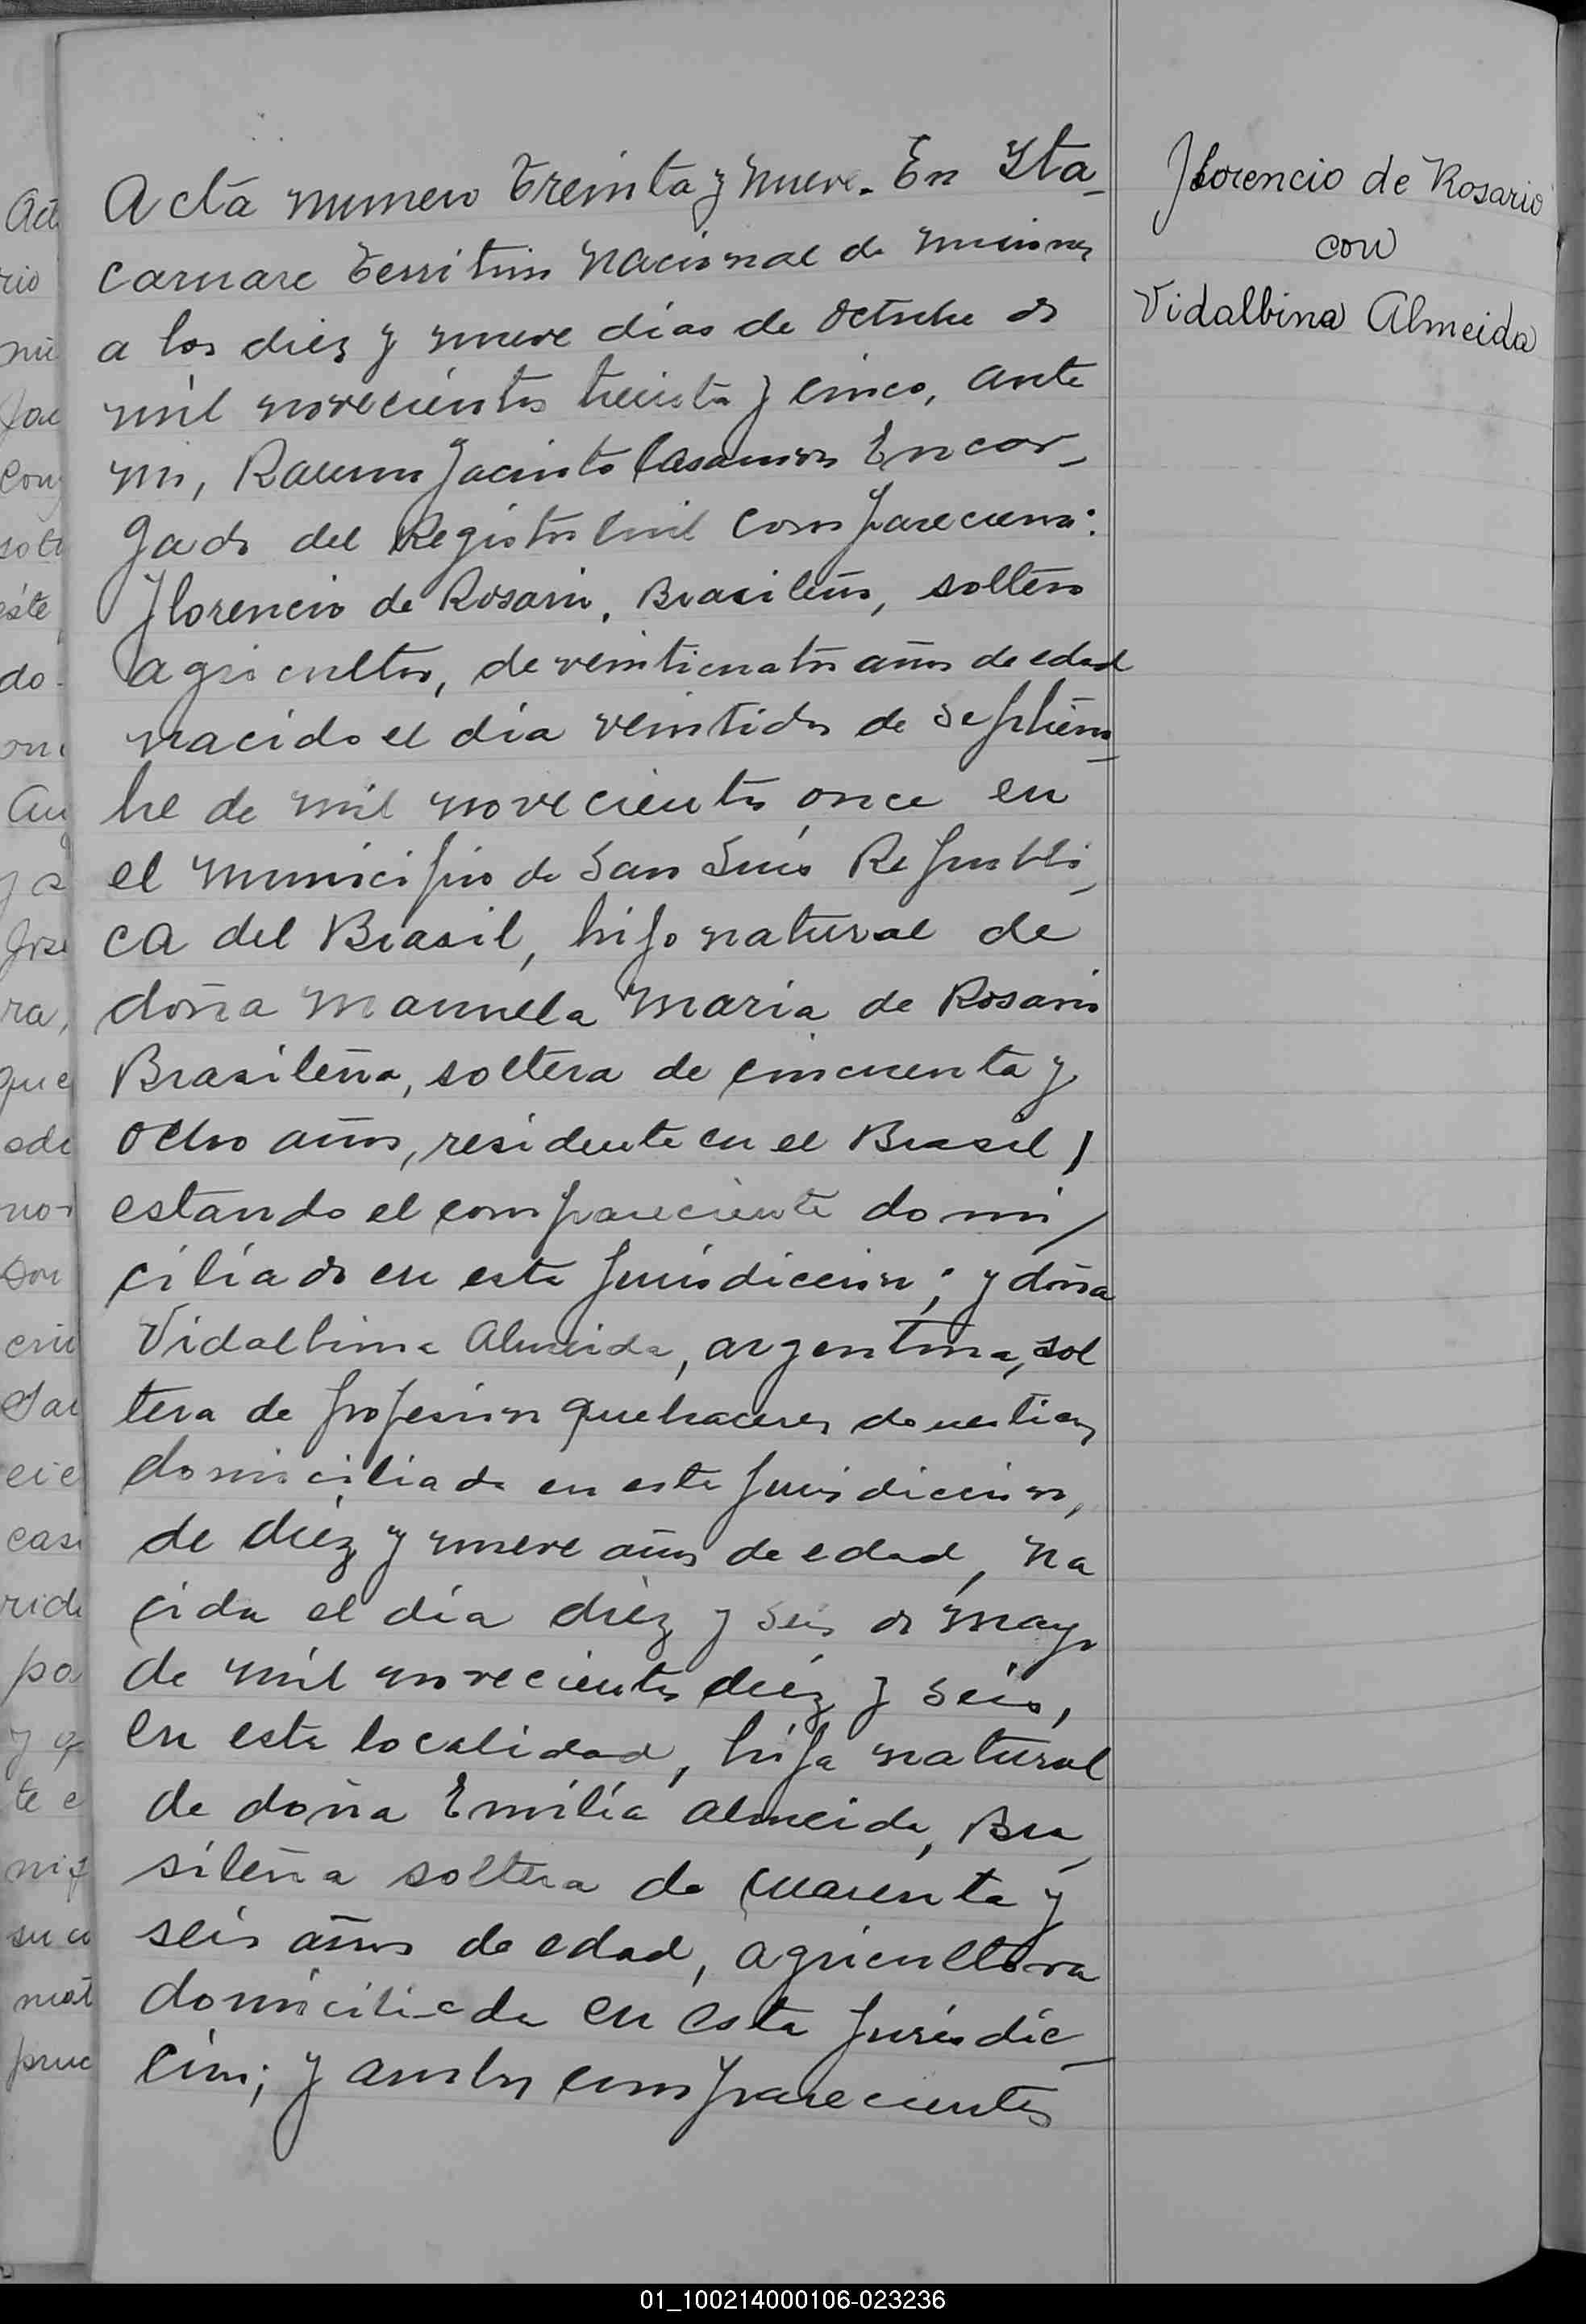 Acta numero treinta y nueve. En Ita-
caruare Territorio Nacional de Misiones
a los diez y nueve dias de octubre de
mil novecientos treinta y cinco, ante
mi, Jacinto Encar-
gado del Registro Civil comparecieron:
Florencio de Rosario, Brasileño, soltero
agricultor, de veinticuatro años de edad
nacido el dia veintidos de septiem-
bre de mil novecientos once en
el Municipio de San Luis Republi-
ca del Brasil, hijo natural de
doña Manuela Maria de Rosario
Brasileña, soltera de cincuenta y
ocho años, residente en el Brasil,
estando el compareciente domi-
ciliado en esta jurisdiccion; y doña
Vidalbina Almeida, argentina, sol
tera de profesion quehaceres domesticos
domiciliada en esta jurisdiccion,
de diez y nueve años de edad, na
cida el dia diez y seis de Mayo
de mil novecientos diez y seis,
en esta localidad, hija natural
de doña Emilia Almeida, Bra-
sileña soltera de cuarenta y
seis años de edad, agricultora
domiciliada en esta jurisdic-
cion; y ambos comparecientes
Florencio de Rosario
con
Vidalbina Almeida
Act
rio
nu
Jac
Con
solt
éste
do
Au
ra,
que
edi
no
cas
rida
pa
te e
su co
mat
prue
01_100214000106-023236